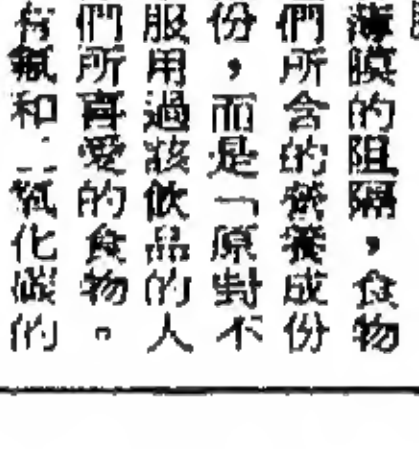 薄膜的阻隔，食物
們所含的營養成份
份，而是「原封不
服用過該飲品的人
們所喜愛的食物。
有氧和二氧化碳的